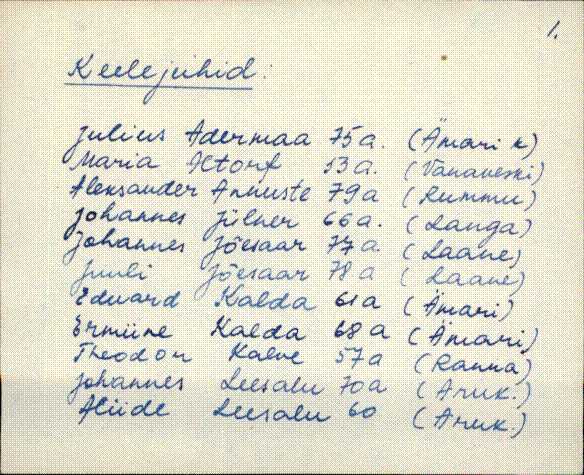 1.
Keelejuhid:
Julius Adermaa 75a. (Ämari k)
Maria Altorf 53a. (Vanaveski)
Aleksander Anniste 79a (Rummu)
Johannes Jülner 66a. (Langa)
Johannes Jõesaar 77a. (Laane)
Juuli Jõesaar 78a (Laane)
Eduard Kalda 61a (Ämari)
Ermiine Kalda 68a (Ämari)
Theodor Kalve 57a (Ranna)
Johannes Leesalu 70a (Aruk.)
Aliide Leesalu 60 (Aruk.)